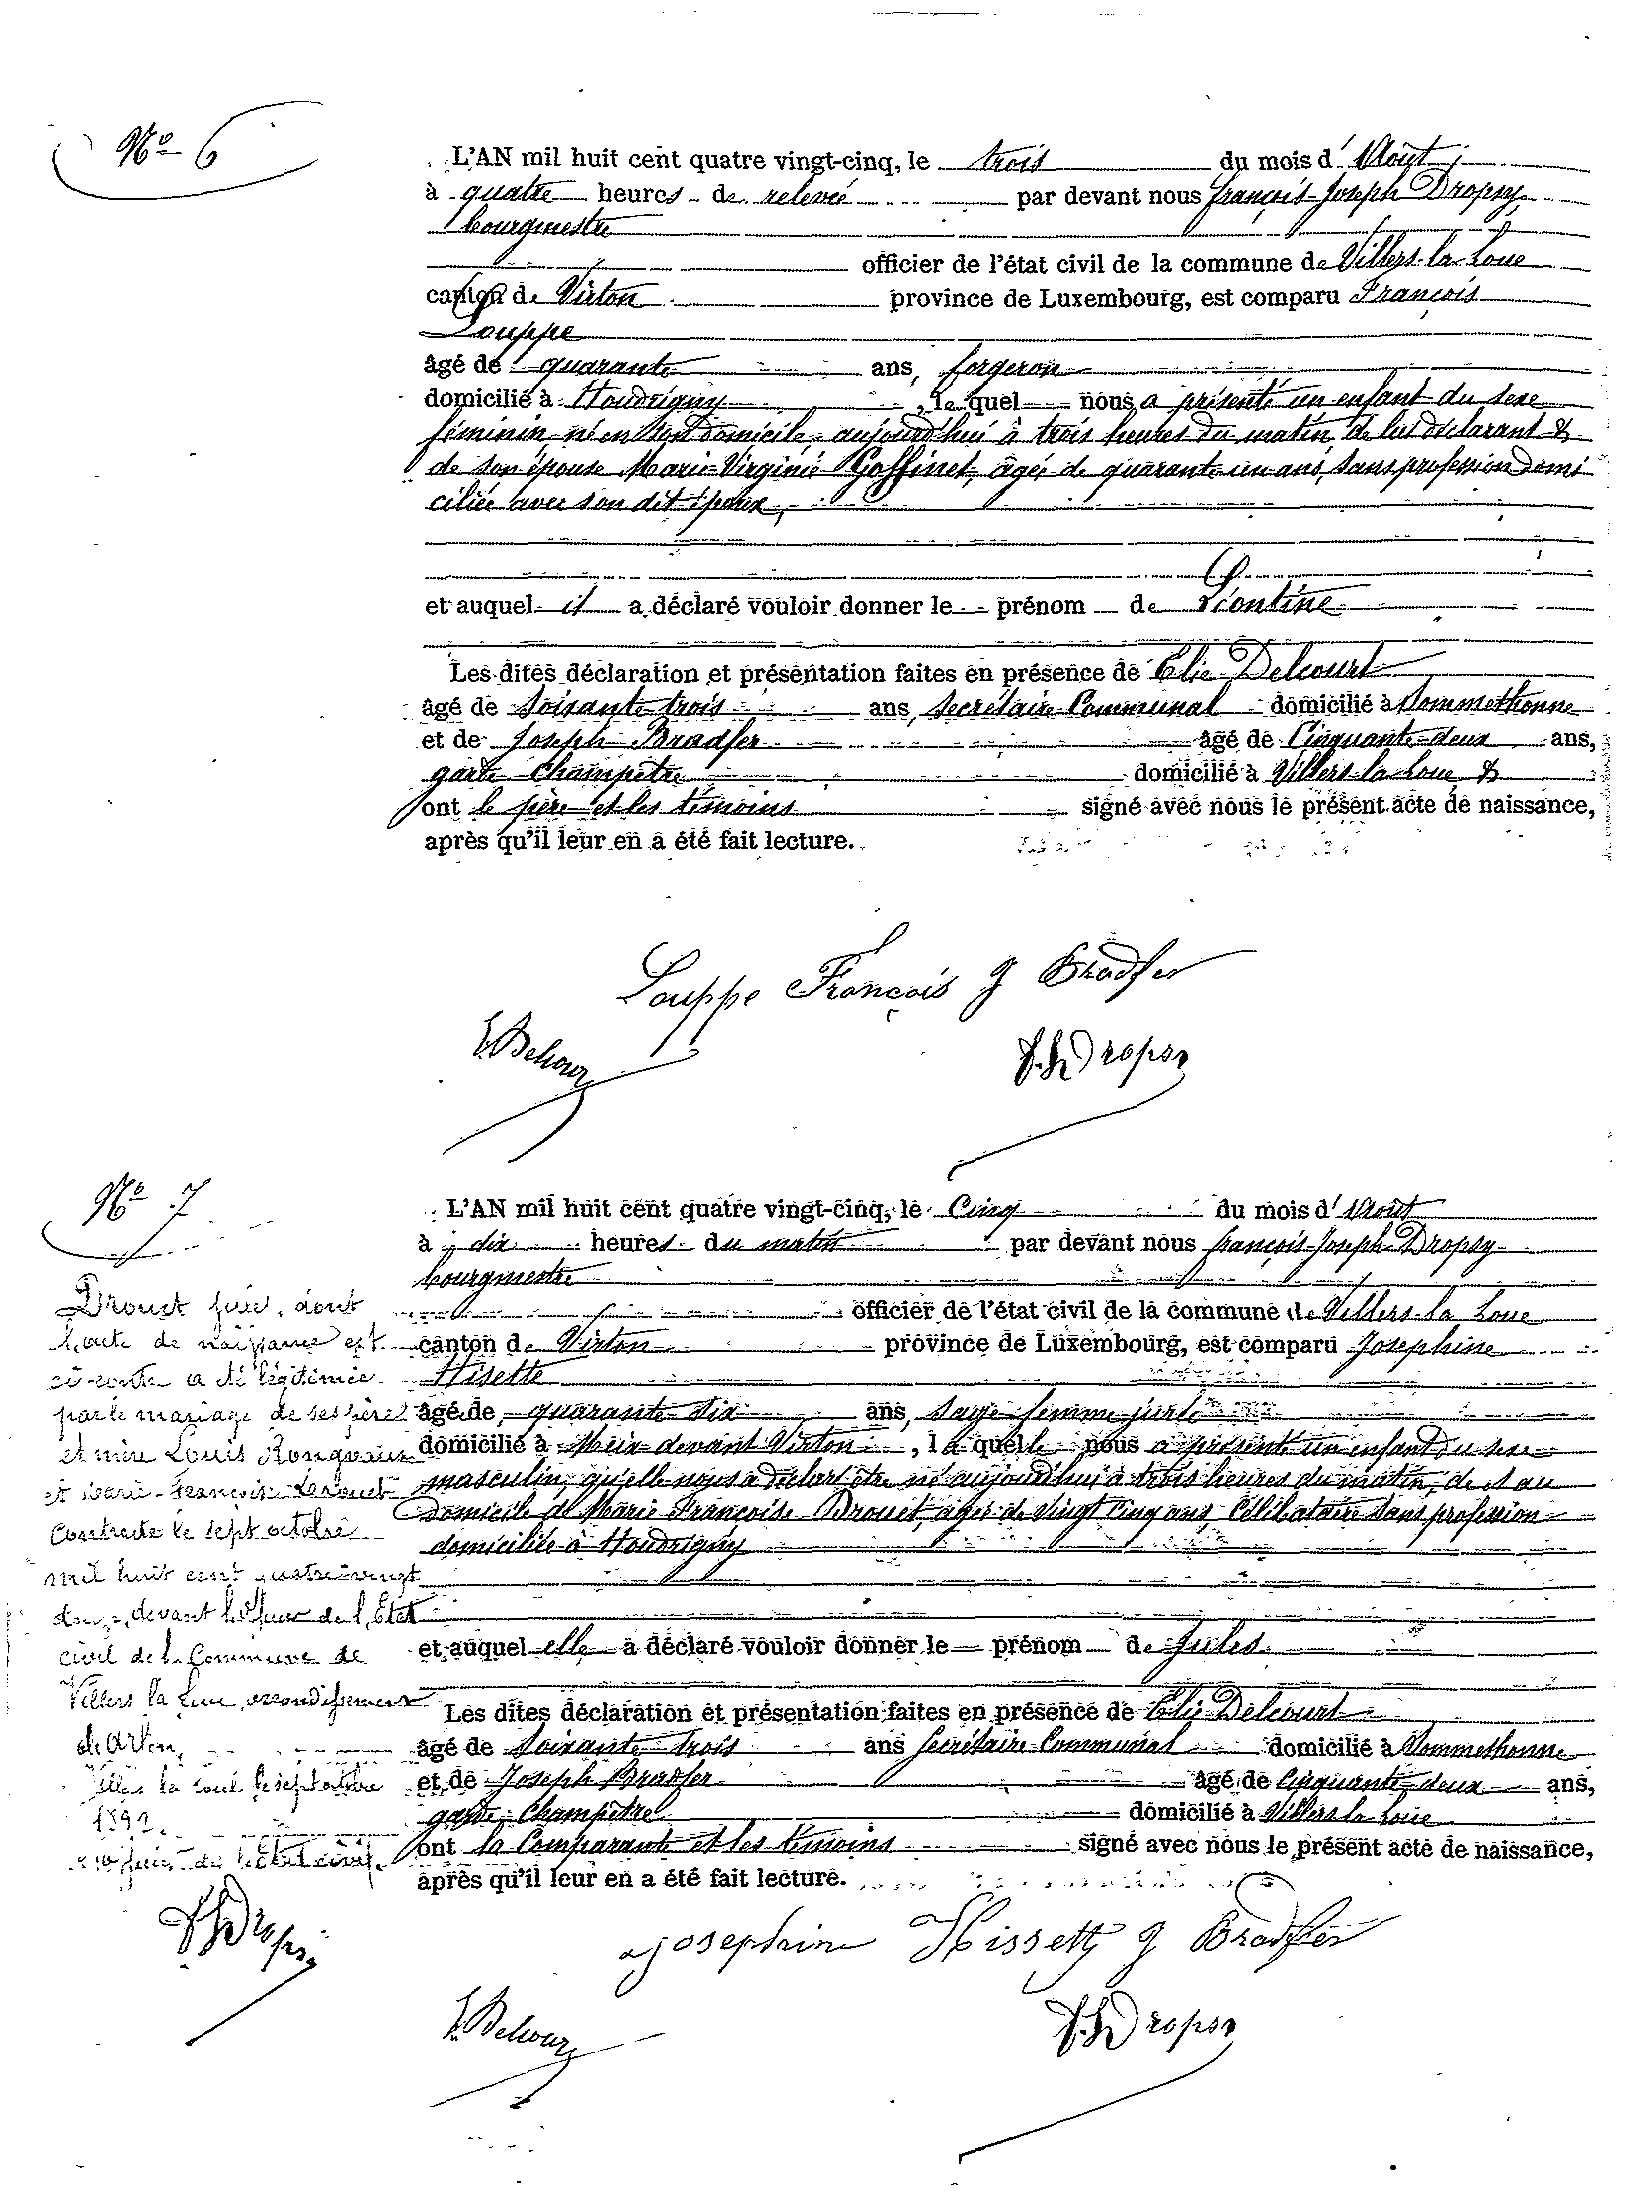 Nº 6
L'AN mil huit cent quatre vingt-cinq, le trois du mois d'Août,
à quatre heures de relevée par devant nous François-Joseph Dropsy,
bourgmestre
officier de l'état civil de la commune de Villers-la-Loue
canton de Virton province de Luxembourg, est comparu François
Louppe
âgé de quarante ans, forgeron
domicilié à Houdrigny, lequel nous a présenté un enfant du sexe
féminin né en son domicile, aujourd'hui à trois heures du matin, de lui déclarant &
de son épouse Marie-Virginie Goffinet, âgée de quarante un ans, sans profession domi
ciliée avec son dit époux,
et auquel il a déclaré vouloir donner le prénom de Léontine
Les dites déclaration et présentation faites en présence de Elie Delcourt
âgé de soixante trois ans, secrétaire Communal domicilié à Sommethonne
et de Joseph Bradfer âgé de Cinquante-deux ans,
garde Champêtre domicilié à Villers-la-Loue &
ont le père et les témoins signé avec nous le présent acte de naissance,
après qu'il leur en a été fait lecture.
Louppe François J Bradfer
E. Delcour F. J. Dropsy
Nº 7
L'AN mil huit cent quatre vingt-cinq, le Cinq du mois d'Août
à dix heures du matin par devant nous François-Joseph Dropsy
bourgmestre
officier de l'état civil de la commune de Villers-la-Loue
canton de Virton province de Luxembourg, est comparu Josephine
Hisette
âgé de quarante six ans, sage femme jurée
domicilié à Meix-devant-Virton, laquelle nous a présenté un enfant du sexe
masculin, qu'elle nous a déclaré être né aujourd'hui à trois heures du matin, de et au
domicile de Marie Françoise Drouet, âgée de vingt cinq ans, Célibataire sans profession
domiciliée à Houdrigny
et auquel elle a déclaré vouloir donner le prénom de Jules
Les dites déclaration et présentation faites en présence de Elie Delcourt
âgé de soixante trois ans secrétaire Communal domicilié à Sommethonne
et de Joseph Bradfer âgé de Cinquante-deux ans,
garde-Champêtre domicilié à Villers-la-Loue
ont la Comparante et les témoins signé avec nous le présent acte de naissance,
après qu'il leur en a été fait lecture.
Josephine Hissette J Bradfer
E. Delcour F. J. Dropsy
Drouet, dont
l'acte de naissance est
ci-contre a été légitimé
par le mariage de ses père
et mère Louis Ronguaux
et Marie-Françoise Drouet
Contracté le sept octobre
mil huit cent quatre-vingt
douze, devant l'officier de l'Etat
civil de la Commune de
Villers la Loue, arrondissement
de Arlon,
Villers la Loue le sept octobre
1892.
de l'état civil.
F J Dropsy